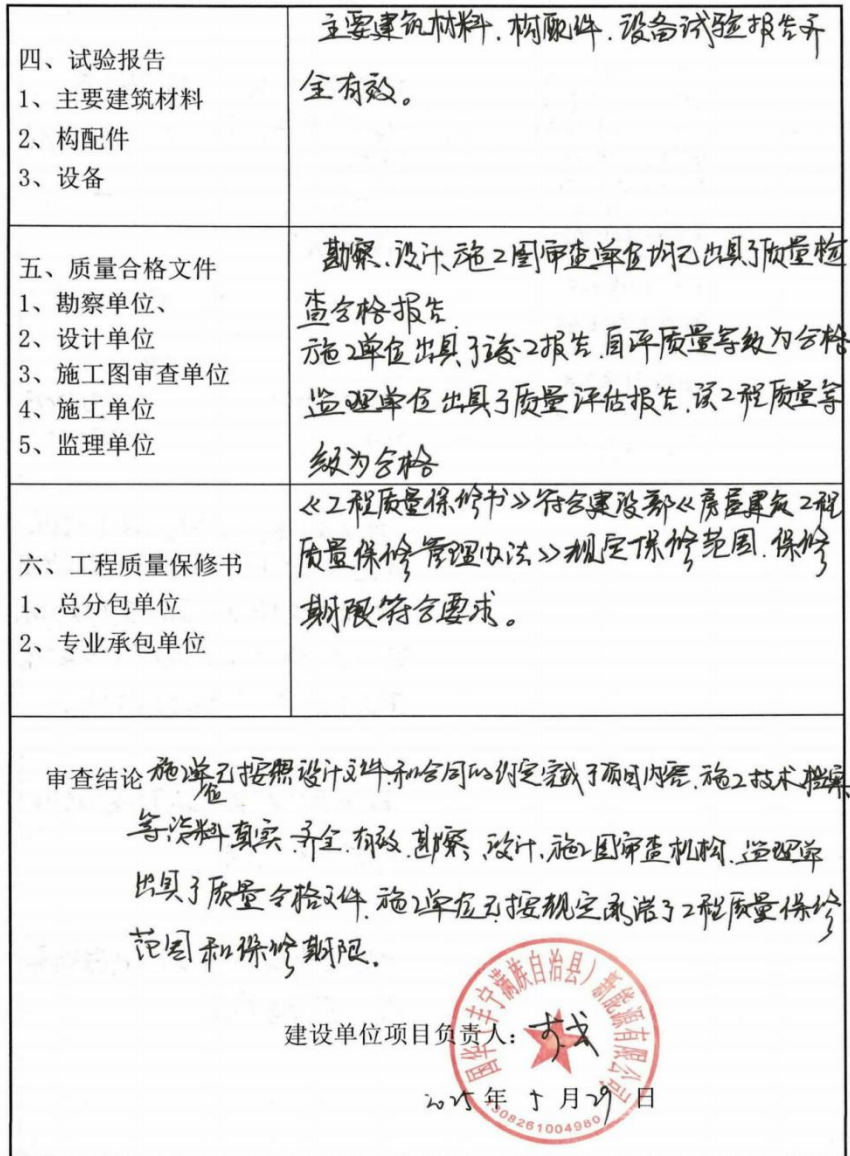 四、试验报告
1、主要建筑材料
2、构配件
3、设备
主要建筑材料、构配件、设备试验报告齐
全有效。
五、质量合格文件
1、勘察单位、
2、设计单位
3、施工图审查单位
4、施工单位
5、监理单位
勘察、设计、施工图审查单位均已出具了质量检
查合格报告
施工单位出具了竣工报告,自评质量等级为合格
监理单位出具了质量评估报告,该工程质量等
级为合格
六、工程质量保修书
1、总分包单位
2、专业承包单位
《工程质量保修书》符合建设部《房屋建筑工程
质量保修管理办法》规定保修范围、保修
期限符合要求。
审查结论 施工单位已按照设计文件和合同的约定完成了项目内容,施工技术档案
等资料真实、齐全、有效,勘察、设计、施工图审查机构、监理单
出具了质量合格文件,施工单位已按规定承诺了工程质量保修
范围和保修期限。
国华(丰宁满族自治县)新能源有限公司
建设单位项目负责人:
2025年5月29日
1308261004980